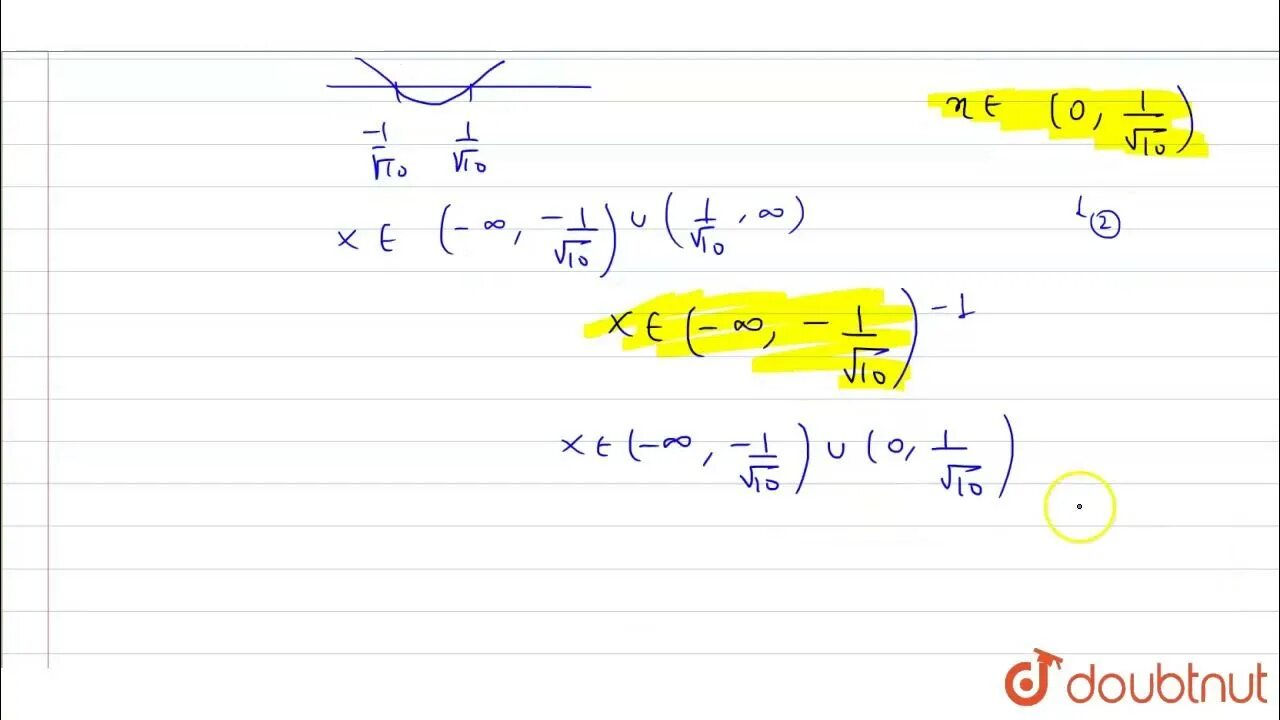 -1/√10 1/√10
x ∈ (0, 1/√10)
②
x ∈ (-∞, -1/√10) ∪ (1/√10, ∞)
x ∈ (-∞, -1/√10) - 1
x ∈ (-∞, -1/√10) ∪ (0, 1/√10)
doubtnut